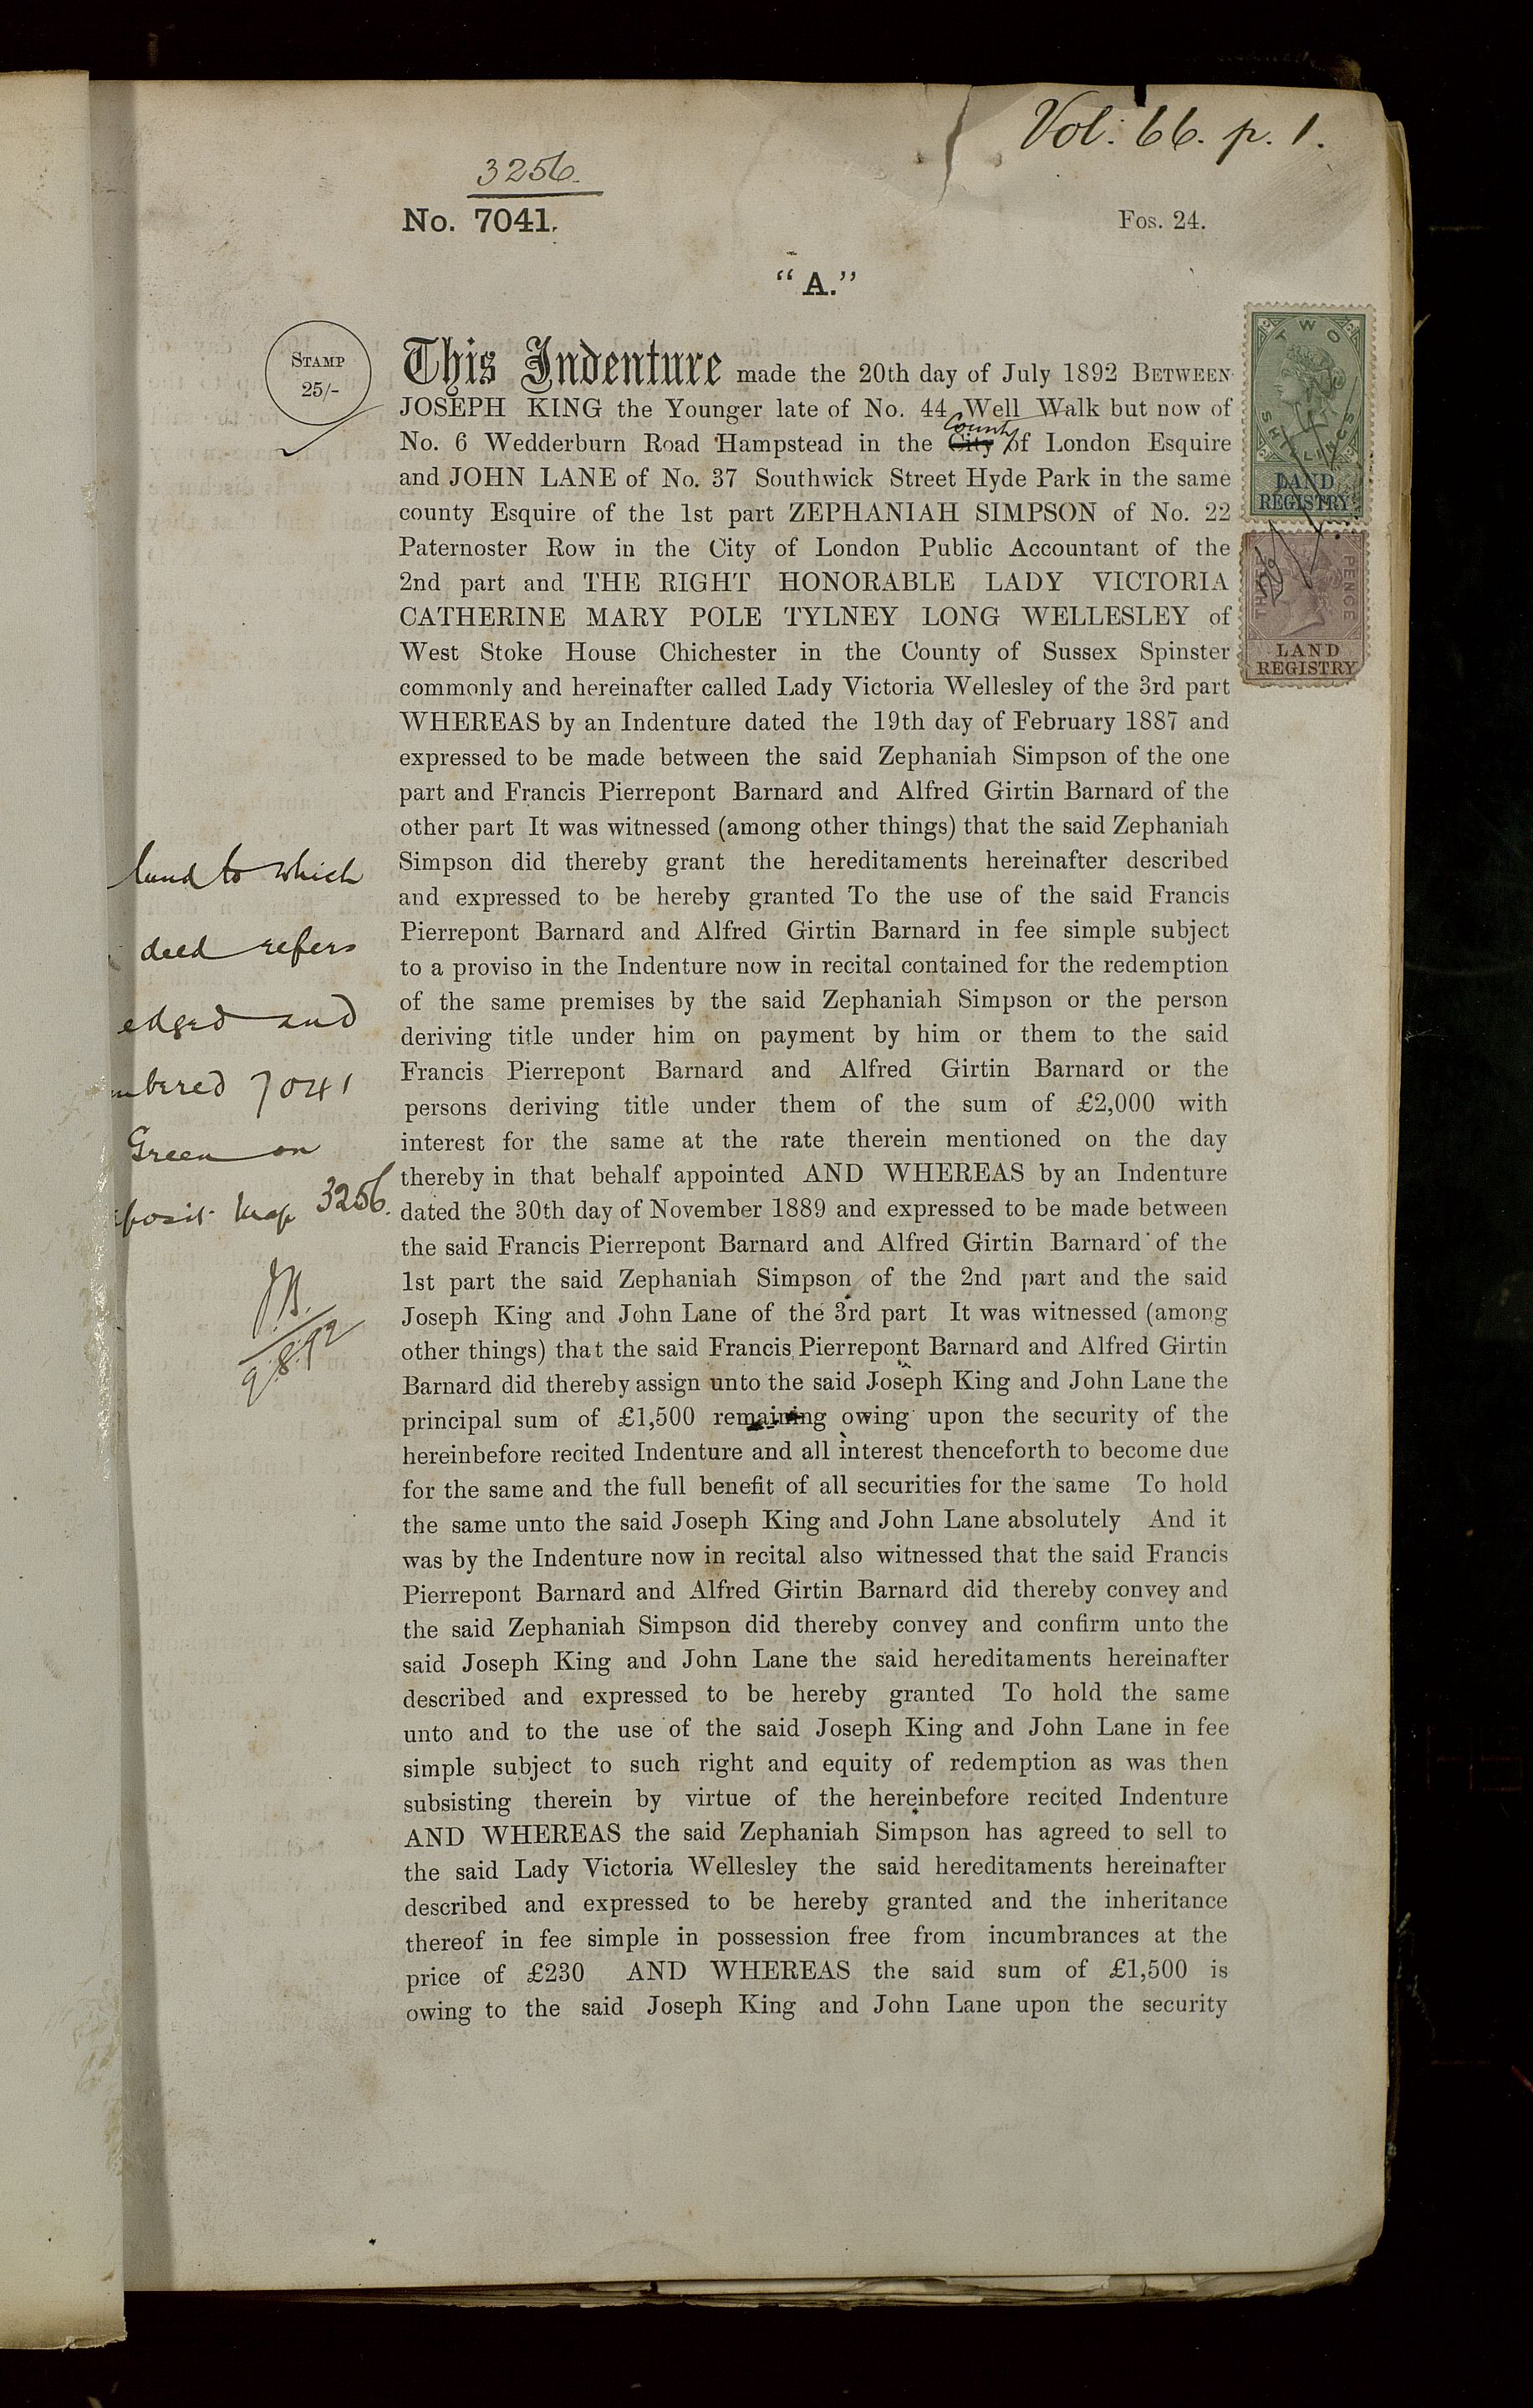 Vol: 66. p. 1.
3256.
No. 7041.
Fos. 24.
"A."
STAMP
25/-
This Indenture made the 20th day of July 1892 BETWEEN
JOSEPH KING the Younger late of No. 44 Well Walk but now of
County
No. 6 Wedderburn Road Hampstead in the City of London Esquire
and JOHN LANE of No. 37 Southwick Street Hyde Park in the same
county Esquire of the 1st part ZEPHANIAH SIMPSON of No. 22
Paternoster Row in the City of London Public Accountant of the
2nd part and THE RIGHT HONORABLE LADY VICTORIA
CATHERINE MARY POLE TYLNEY LONG WELLESLEY of
West Stoke House Chichester in the County of Sussex Spinster
commonly and hereinafter called Lady Victoria Wellesley of the 3rd part
WHEREAS by an Indenture dated the 19th day of February 1887 and
expressed to be made between the said Zephaniah Simpson of the one
part and Francis Pierrepont Barnard and Alfred Girtin Barnard of the
other part It was witnessed (among other things) that the said Zephaniah
Simpson did thereby grant the hereditaments hereinafter described
and expressed to be hereby granted To the use of the said Francis
Pierrepont Barnard and Alfred Girtin Barnard in fee simple subject
to a proviso in the Indenture now in recital contained for the redemption
of the same premises by the said Zephaniah Simpson or the person
deriving title under him on payment by him or them to the said
Francis Pierrepont Barnard and Alfred Girtin Barnard or the
persons deriving title under them of the sum of £2,000 with
interest for the same at the rate therein mentioned on the day
thereby in that behalf appointed AND WHEREAS by an Indenture
dated the 30th day of November 1889 and expressed to be made between
the said Francis Pierrepont Barnard and Alfred Girtin Barnard of the
1st part the said Zephaniah Simpson of the 2nd part and the said
Joseph King and John Lane of the 3rd part It was witnessed (among
other things) that the said Francis Pierrepont Barnard and Alfred Girtin
Barnard did thereby assign unto the said Joseph King and John Lane the
principal sum of £1,500 remaining owing upon the security of the
hereinbefore recited Indenture and all interest thenceforth to become due
for the same and the full benefit of all securities for the same To hold
the same unto the said Joseph King and John Lane absolutely And it
was by the Indenture now in recital also witnessed that the said Francis
Pierrepont Barnard and Alfred Girtin Barnard did thereby convey and
the said Zephaniah Simpson did thereby convey and confirm unto the
said Joseph King and John Lane the said hereditaments hereinafter
described and expressed to be hereby granted To hold the same
unto and to the use of the said Joseph King and John Lane in fee
simple subject to such right and equity of redemption as was then
subsisting therein by virtue of the hereinbefore recited Indenture
AND WHEREAS the said Zephaniah Simpson has agreed to sell to
the said Lady Victoria Wellesley the said hereditaments hereinafter
described and expressed to be hereby granted and the inheritance
thereof in fee simple in possession free from incumbrances at the
price of £230 AND WHEREAS the said sum of £1,500 is
owing to the said Joseph King and John Lane upon the security
land to which
deed refers
edged and
mbered 7041
Green on
posit map 3256.
9.8.92
TWO
SHILLINGS
LAND
REGISTRY
PENCE
LAND
REGISTRY